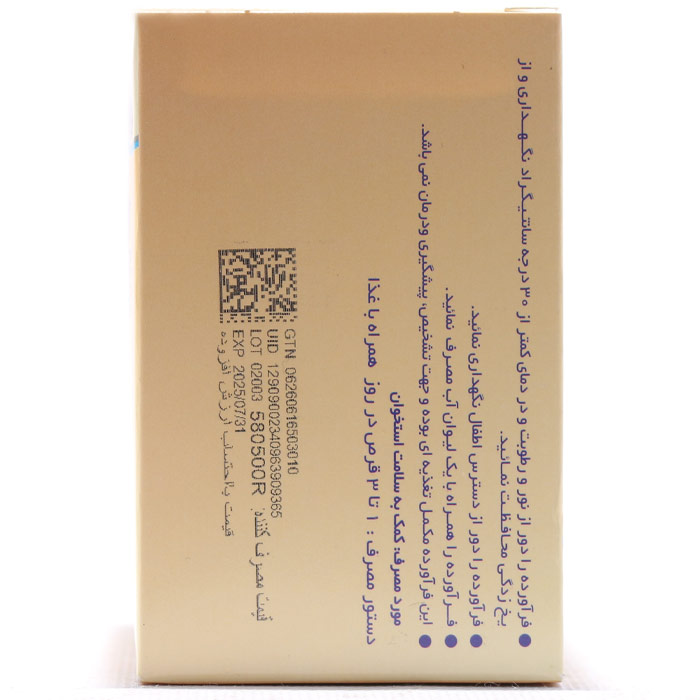 ● فرآورده را دور از نور و رطوبت و در دمای کمتر از ۳۰ درجه سانتیگراد نگهداری و از
یخ زدگی محافظت نمائید.
● فرآورده را دور از دسترس اطفال نگهداری نمائید.
● فرآورده را همراه با یک لیوان آب مصرف نمائید.
● این فرآورده مکمل تغذیه ای بوده و جهت تشخیص، پیشگیری ودرمان نمی باشد.
مورد مصرف: کمک به سلامت استخوان
دستور مصرف: ۱ تا ۳ قرص در روز همراه با غذا
GTN 06260616503010
UID 12909002340963909365
LOT 02003 580500R قیمت مصرف کننده:
EXP 2025/07/31
قیمت بااحتساب ارزش افزوده